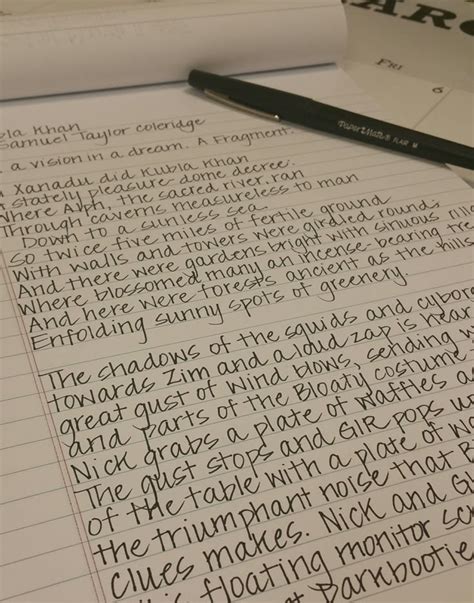 ARC
FRI
6
PaperMate® FLAIR M
bla Khan
Samuel Taylor Coleridge
a vision in a dream. A Fragment.
Xanadu did Kubla Khan
stately pleasure-dome decree:
here Alph, the sacred river, ran
Through caverns measureless to man
Down to a sunless sea.
So twice five miles of fertile ground
With walls and towers were girdled round;
And there were gardens bright with sinuous rill
Where blossomed many an incense-bearing tre
And here were forests ancient as the hills
Enfolding sunny spots of greenery.
The shadows of the squids and cybor
towards Zim and a loud zap is hear
great gust of wind blows, sending
and parts of the Bloaty costume
Nick grabs a plate of waffles a
The gust stops and GIR pops u
of the table with a plate of wa
the triumphant noise that B
clues makes. Nick and G
floating monitor sc
Parkbootie